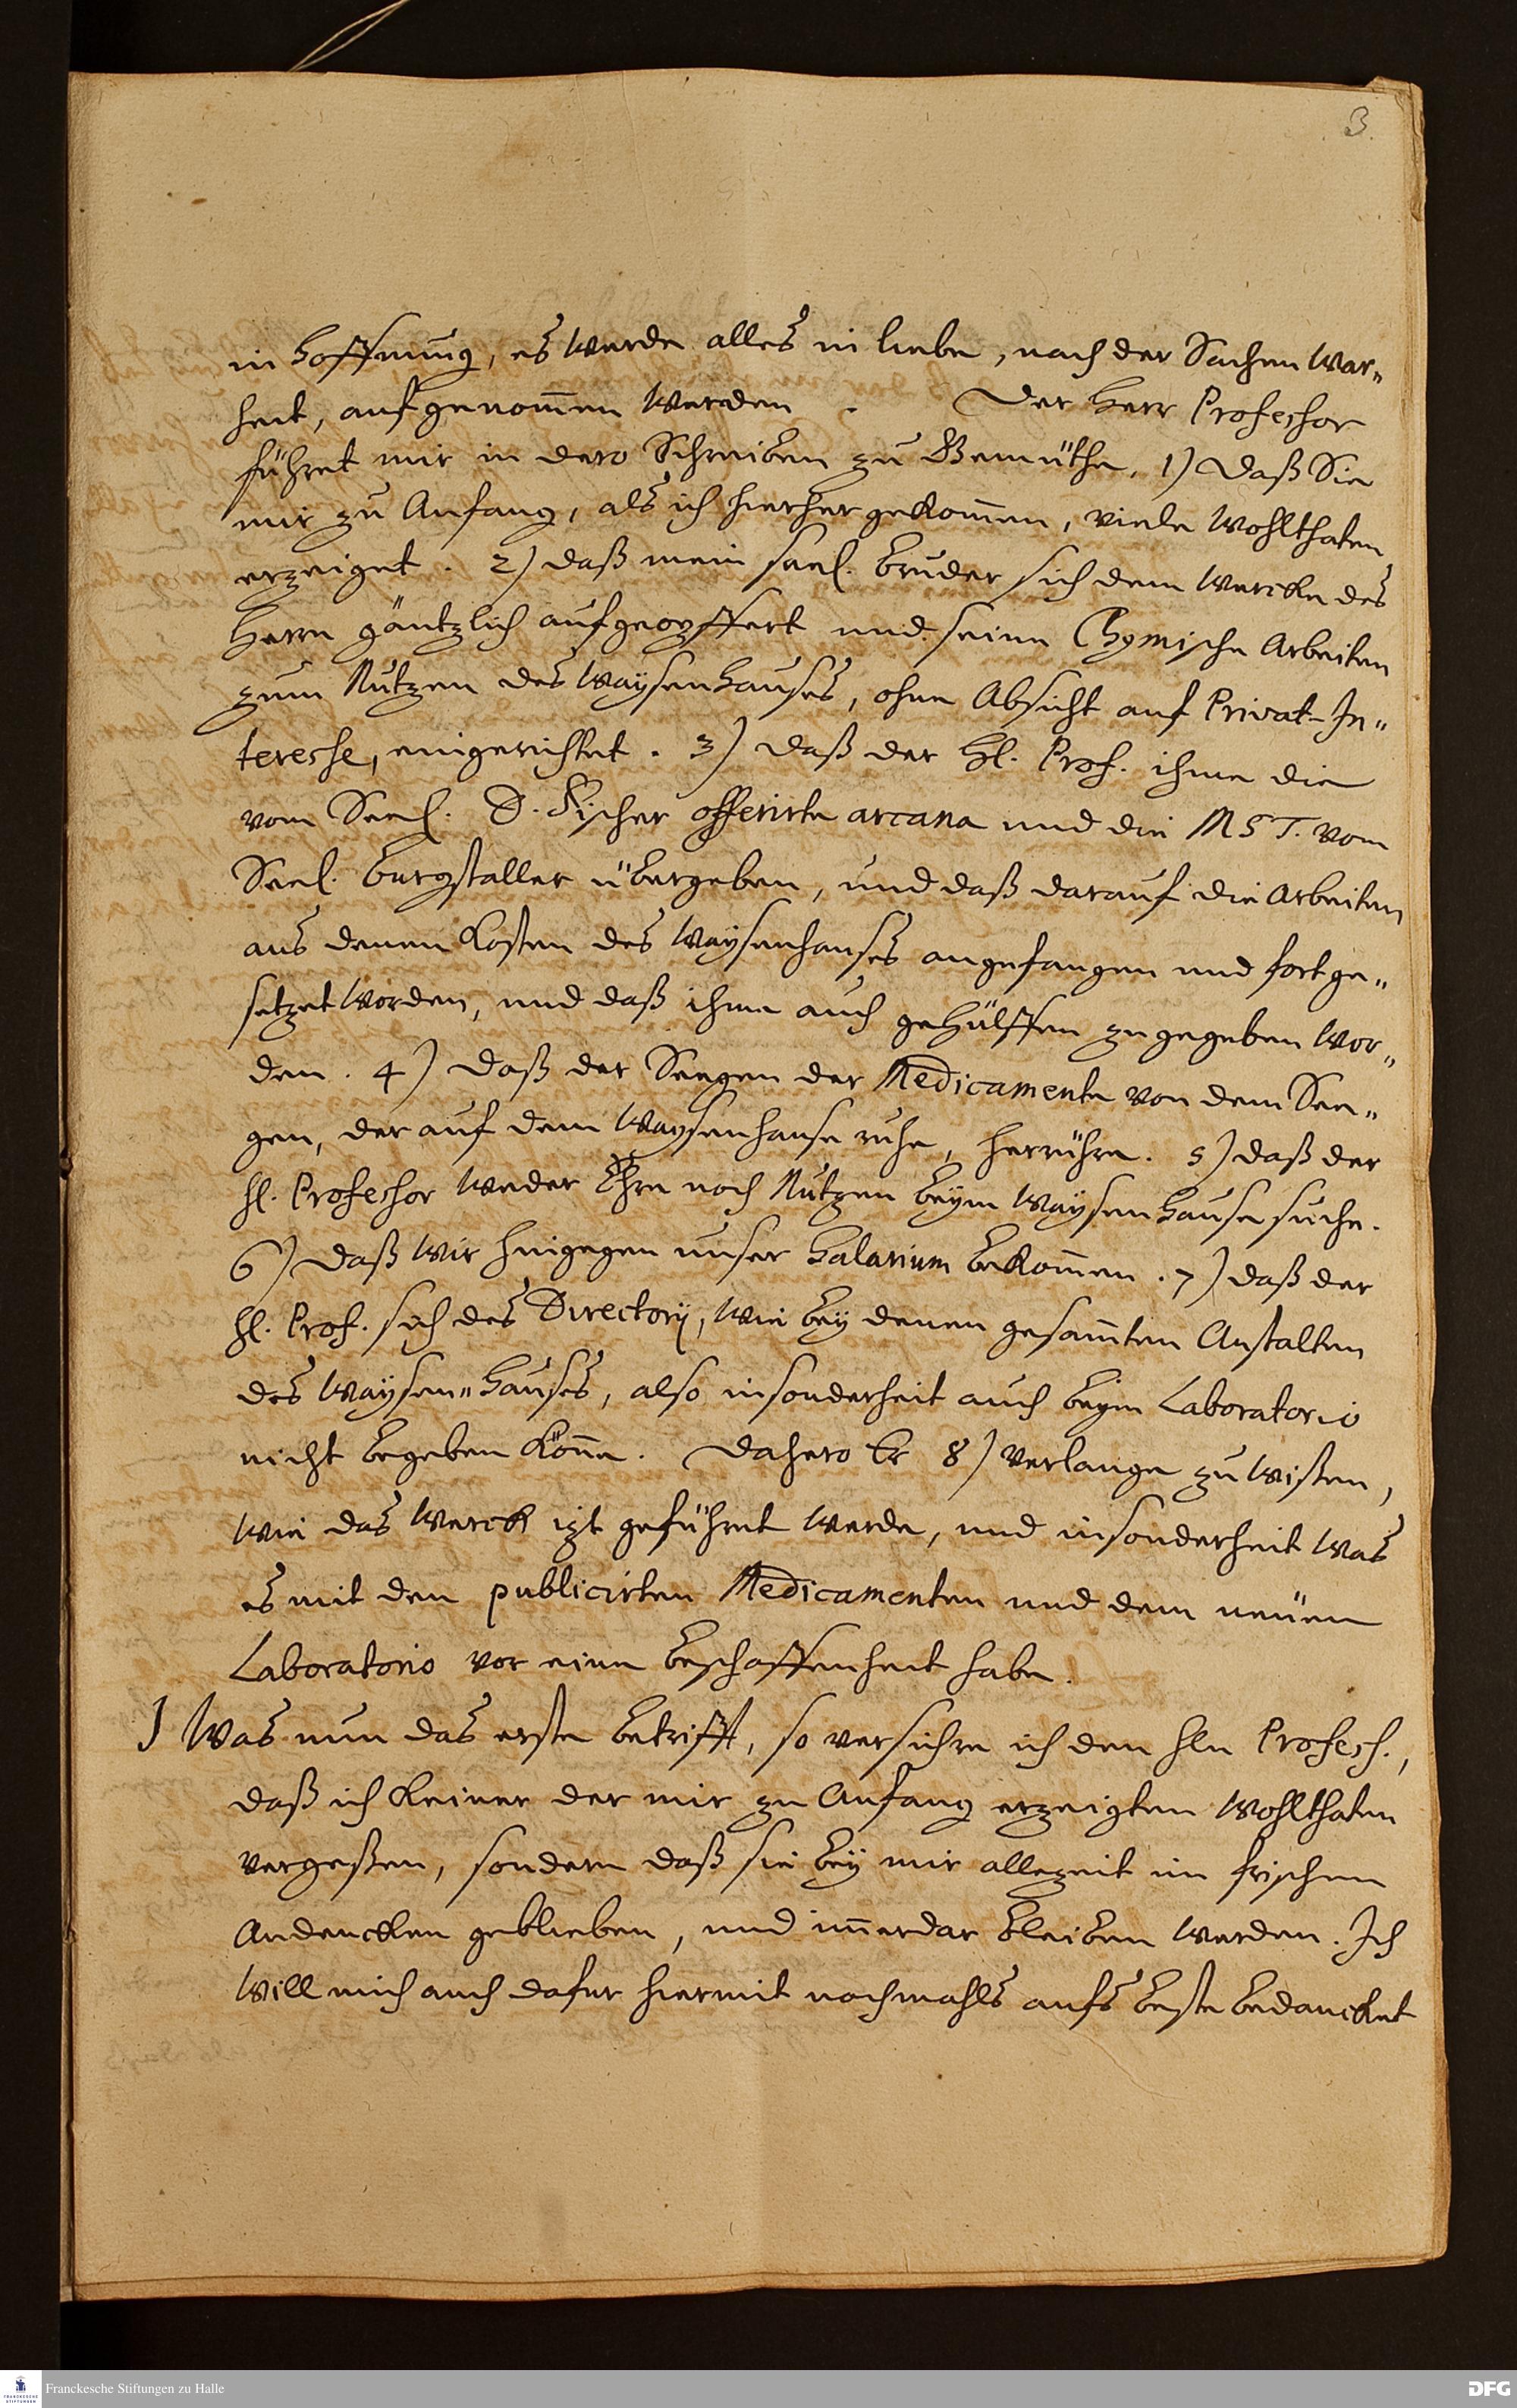 3.
in Hoffnung, es werde alles in liebe, nach der Sachen War„
heit, aufgenom̃en werden . Der Herr Professor
führet mir in dero Schreiben zu Gemüthe, 1) daß Sie
mir zu Anfang, als ich hierher gekom̃en, viele Wohlthaten
erzeiget. 2) daß mein seel. Bruder sich dem Wercke des
Herrn gäntzlich aufgeopffert und seine Chymische Arbeiten
zum Nutzen des Waysenhauses, ohne Absicht auf Privat-In„
teresse, eingerichtet. 3) daß der Hl. Prof. ihme die
vom Seel. D. Fischer offerirte arcana und die MST. vom
Seel. Burgstaller übergeben, und daß darauf die Arbeiten
aus denen Kosten des Waysenhauses angefangen und fortge„
setzet worden, und daß ihme auch gehülffen zugegeben wor„
den. 4) daß der Seegen der Medicamente von dem See„
gen, der auf dem Waysenhause ruhe, herrühre. 5) daß der
Hl. Professor weder Ehre noch Nutzen beym Waysenhause suche.
6) daß wir hingegen unser Salarium bekom̃en. 7) daß der
Hl. Prof. sich des Directorij, wie bey denen gesam̃ten Anstalten
des Waysen„Hauses, also insonderheit auch beym Laboratorio
nicht begeben kön̄e. Dahero Er 8) verlange zu wißen,
wie das Werck izt geführet werde, und insonderheit was
es mit den publicirten Medicamenten und dem neuen
Laboratorio vor eine beschaffenheit habe.
1 Was nun das erste betrifft, so versichre ich den Hln Profess.,
daß ich keiner der mir zu Anfang erzeigten Wohlthaten
vergeßen, sondern daß sie bey mir allezeit im frischen
Andencken geblieben, und im̃erdar bleiben werden. Ich
will mich auch dafur hiermit nochmahls aufs beste bedancket
Franckesche Stiftungen zu Halle
FRANCKESCHE
STIFTUNGEN
DFG